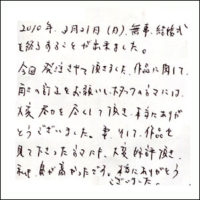 2010年、3月21日(日)、無事、結婚式
を終了することが出来ました。
今回発注させて頂きました、作品に関して、
再三訂正をお願いし、スタッフの方々には、
大変尽力を尽くして頂き、本当にありが
とうございました。妻、そして、作品を
見て下さった方々に、大変好評で頂き、
私も鼻が高かったです。本当にありがとう
ございました。